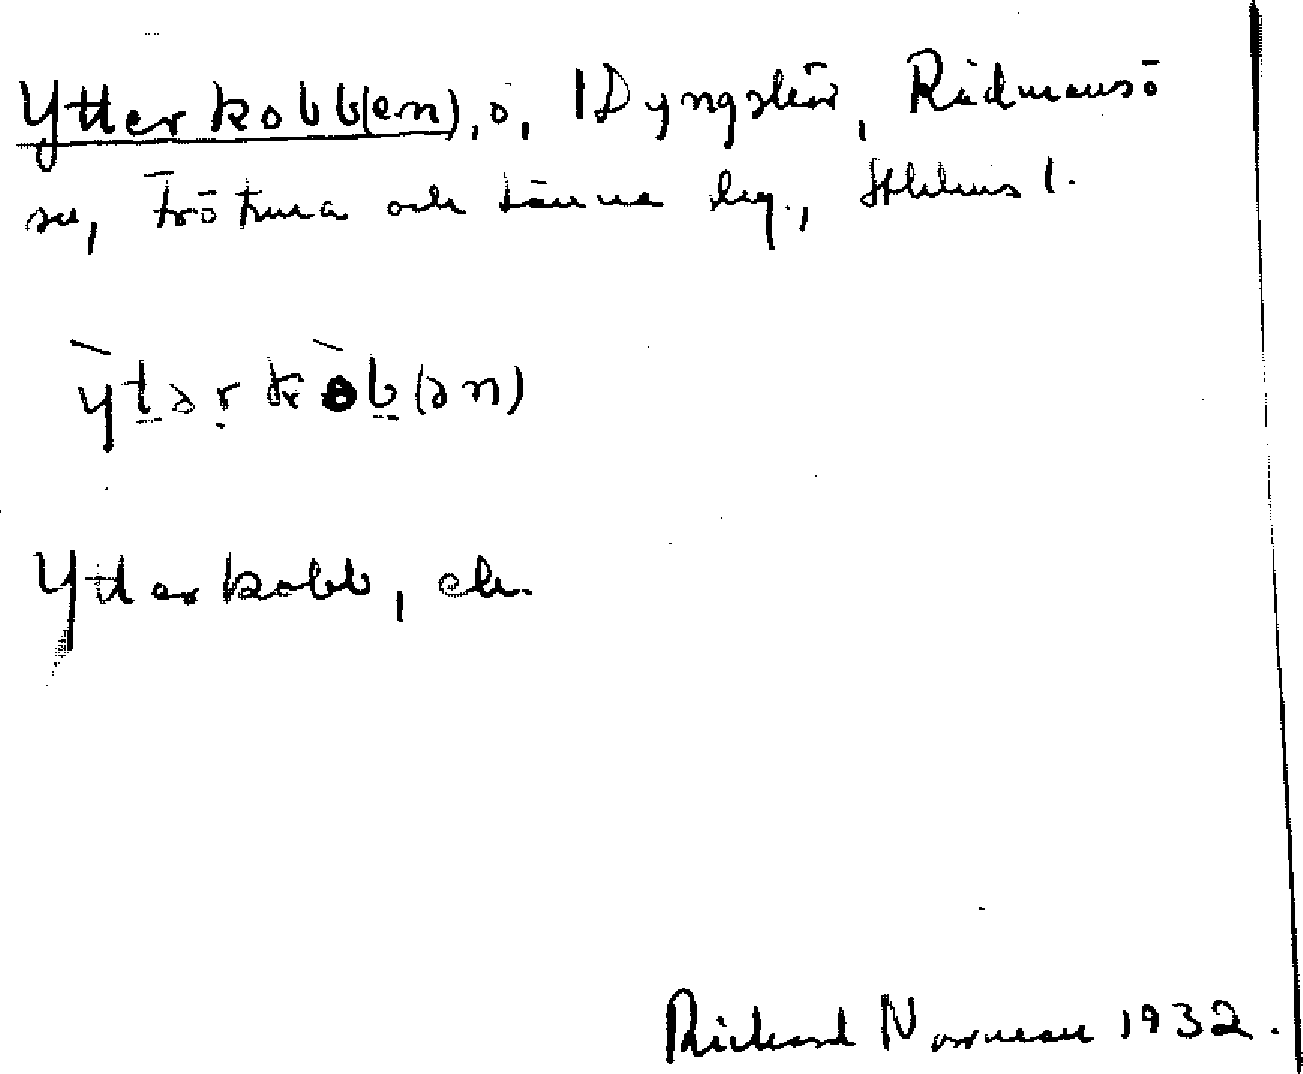 Ytterkobb(en), ö, Dyngskär, Rådmansö
sn, Frötuna och Länna lag., Sthlms l.
ỳtərkòb(ən)
Ytterkobb, ek.
Rickard Norrman 1932.